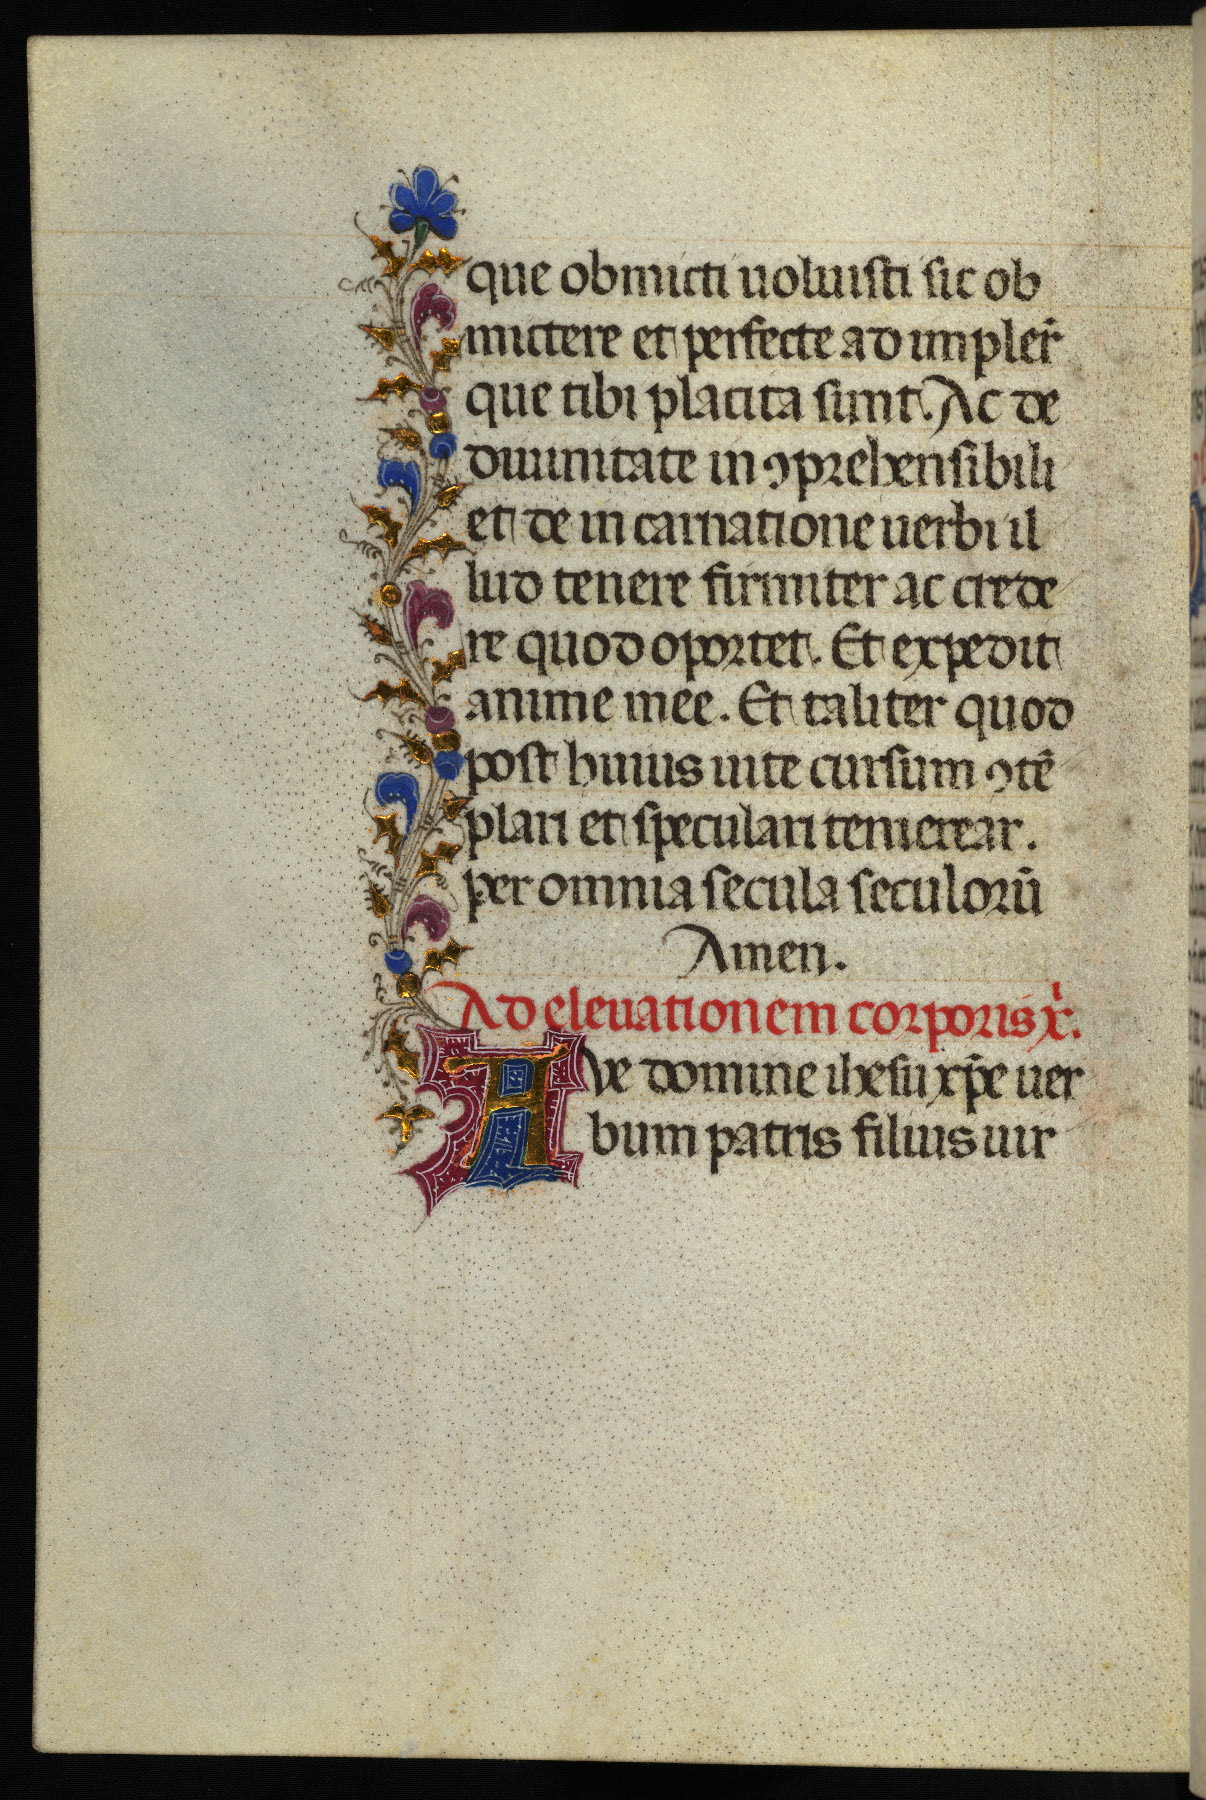 que obmicti uoluisti sic ob
mictere et perfecte ad impler̄
que tibi placita sunt. Ac de
diuinitate in ꝯprehensibili
et de in carnatione uerbi il
lud tenere firmiter ac crede
re quod oportet. Et expedit
anime mee. Et taliter quod
post huius uite cursum ꝯtē
plari et speculari te merear.
per omnia secula seculorū
Amen.
Ad eleuationem corporis x̄.
Aue domine ihesu xp̄e uer
bum patris filius uir